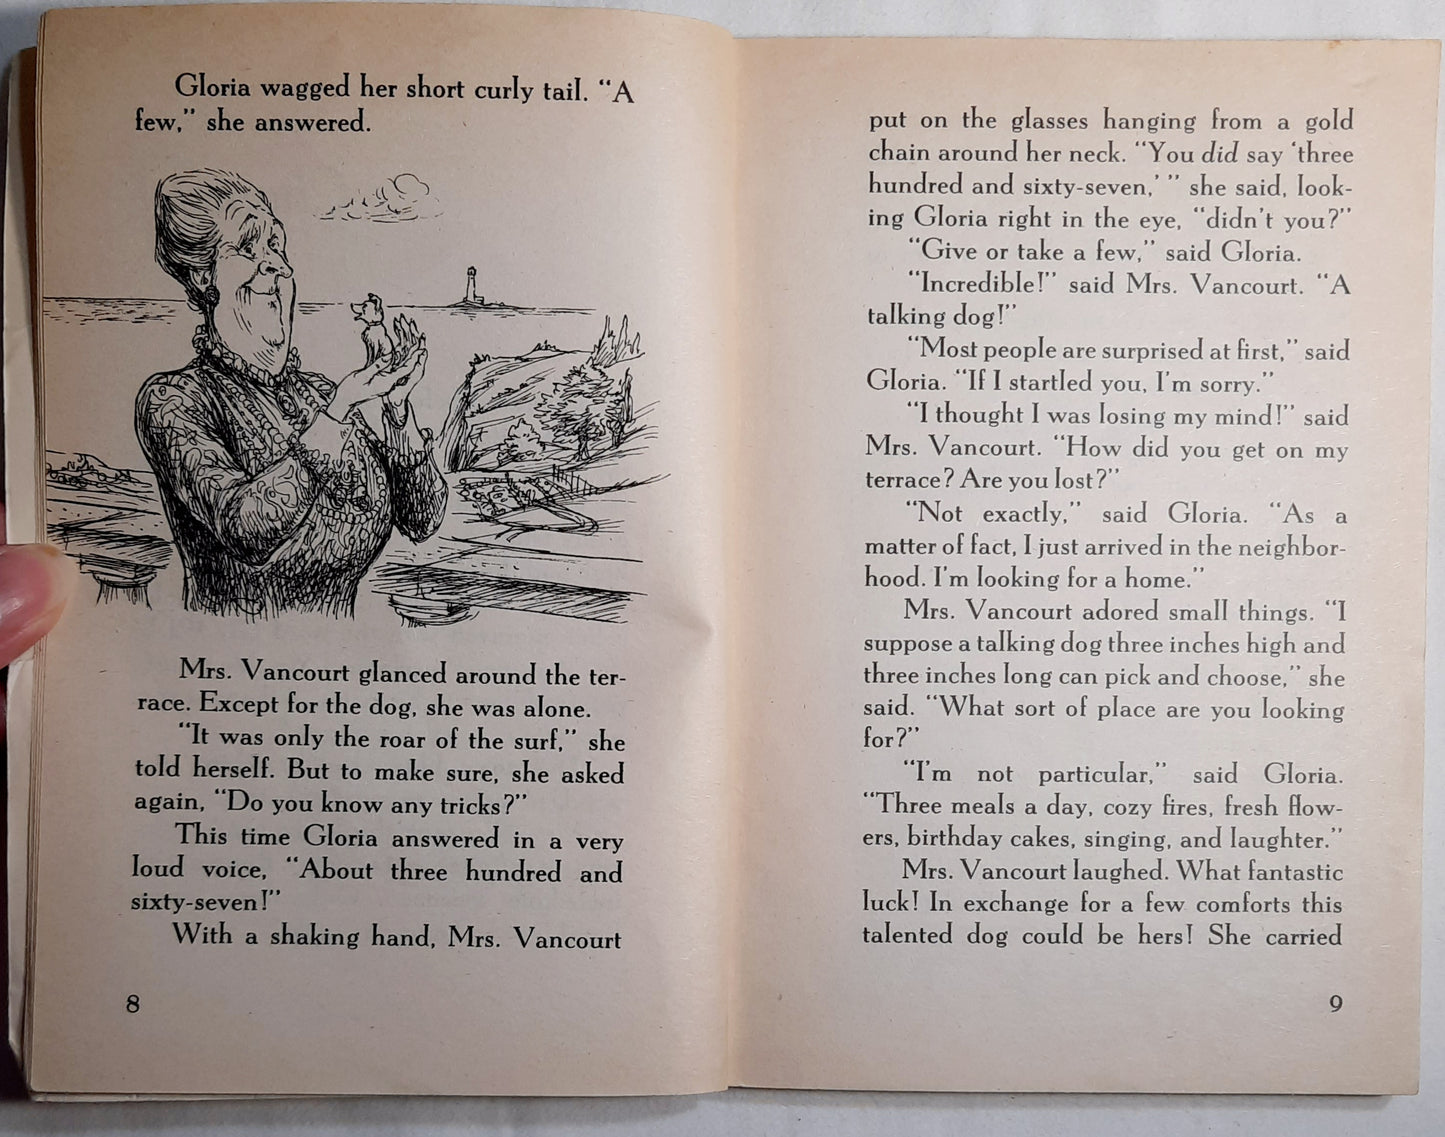 Gloria wagged her short curly tail. “A
few,” she answered.
Mrs. Vancourt glanced around the ter-
race. Except for the dog, she was alone.
“It was only the roar of the surf,” she
told herself. But to make sure, she asked
again, “Do you know any tricks?”
This time Gloria answered in a very
loud voice, “About three hundred and
sixty-seven!”
With a shaking hand, Mrs. Vancourt
8
put on the glasses hanging from a gold
chain around her neck. “You did say ‘three
hundred and sixty-seven,’ ” she said, look-
ing Gloria right in the eye, “didn’t you?”
“Give or take a few,” said Gloria.
“Incredible!” said Mrs. Vancourt. “A
talking dog!”
“Most people are surprised at first,” said
Gloria. “If I startled you, I’m sorry.”
“I thought I was losing my mind!” said
Mrs. Vancourt. “How did you get on my
terrace? Are you lost?”
“Not exactly,” said Gloria. “As a
matter of fact, I just arrived in the neighbor-
hood. I’m looking for a home.”
Mrs. Vancourt adored small things. “I
suppose a talking dog three inches high and
three inches long can pick and choose,” she
said. “What sort of place are you looking
for?”
“I’m not particular,” said Gloria.
“Three meals a day, cozy fires, fresh flow-
ers, birthday cakes, singing, and laughter.”
Mrs. Vancourt laughed. What fantastic
luck! In exchange for a few comforts this
talented dog could be hers! She carried
9